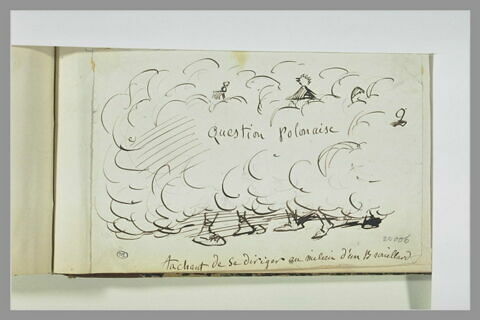 Question Polonaise
20006
tachant de se diriger au milieu d'un Brouillard